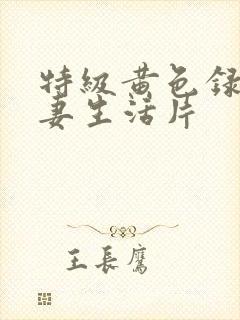 特級黄色録
妻生活片
王長鷹